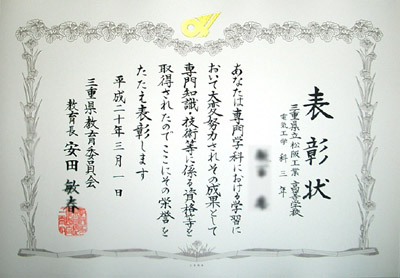 表彰状
三重県立松阪工業高等学校
電気工学科三年
あなたは専門学科における学習に
おいて大変努力されその成果として
専門知識、技術等に係る資格等を
取得されたのでここにその栄誉を
たたえ表彰します
平成二十年三月一日
三重県教育委員会
教育長 安田敏春